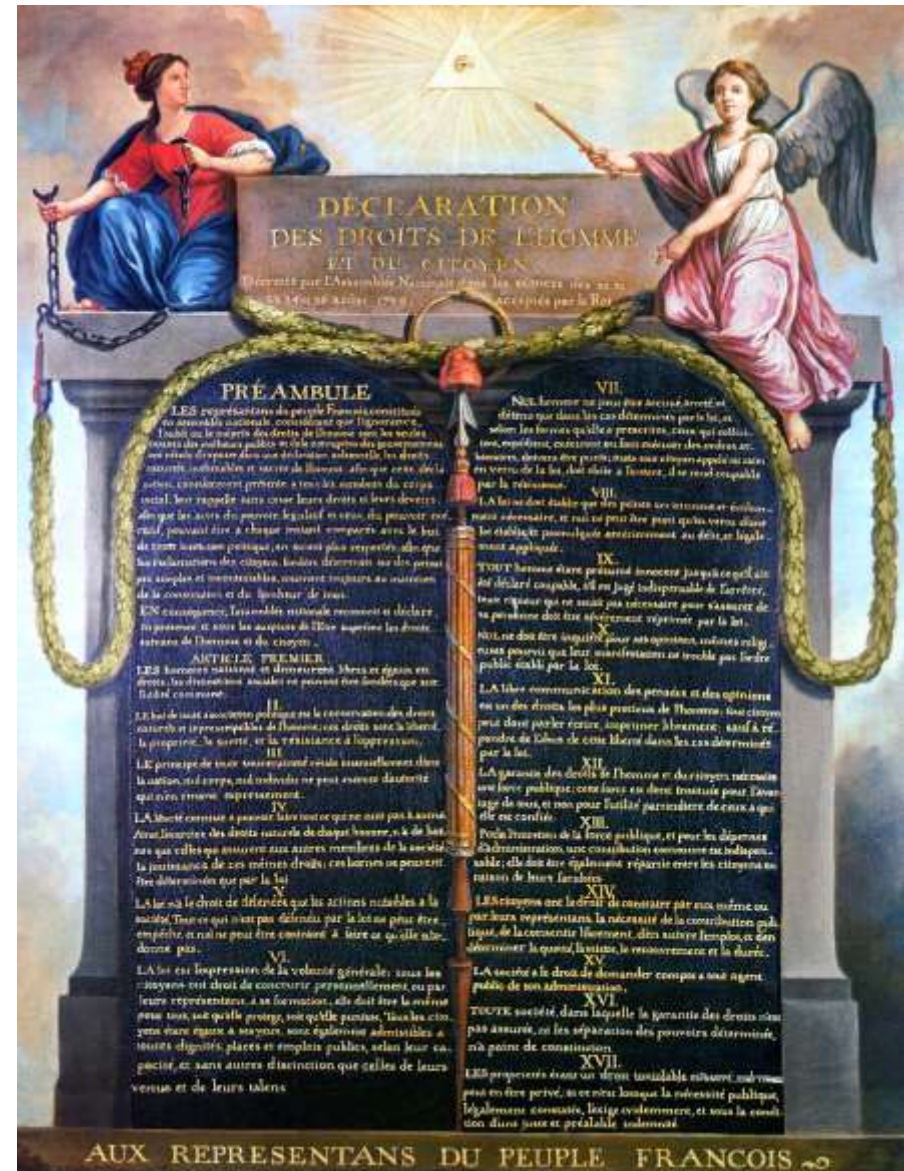 DÉCLARATION
DES DROITS DE L'HOMME
ET DU CITOYEN
Décrétés par l'Assemblée Nationale dans les séances des 20. 21.
acceptés par le Roi
PRÉAMBULE
LES représentans du peuple François, constitués
en assemblée nationale, considérant que l'ignorance,
l'oubli ou le mépris des droits de l'homme sont les seules
causes des malheurs publics et de la corruption des gouvernemens
ont résolu d'exposer dans une déclaration solemnelle, les droits
naturels, inaliénables et sacrés de l'homme; afin que cette décla-
ration, constamment présente a tous les membres du corps
social, leur rappelle sans cesse leurs droits et leurs devoirs;
afin que les actes du pouvoir législatif et ceux du pouvoir exé-
cutif, pouvant être à chaque instant comparés avec le but
de toute institution politique, en soient plus respectés; afin que
les réclamations des citoyens, fondées désormais sur des princi-
pes simples et incontestables, tournent toujours au maintien
de la constitution et du bonheur de tous.
EN conséquence, l'assemblée nationale reconnoit et déclare
en présence et sous les auspices de l'Etre suprême les droits
suivans de l'homme et du citoyen.
ARTICLE PREMIER.
LES hommes naissent et demeurent libres et égaux en
droits; les distinctions sociales ne peuvent être fondées que sur
l'utilité commune.
II.
LE but de toute association politique est la conservation des droits
naturels et imprescriptibles de l'homme; ces droits sont la liberté,
la propriété, la sureté, et la résistance à l'oppression.
III.
LE principe de toute souveraineté réside essentiellement dans
la nation, nul corps, nul individu ne peut exercer d'autorité
qui n'en émane expressement.
IV.
LA liberté consiste a pouvoir faire tout ce qui ne nuit pas à autrui
Ainsi, l'exercice des droits naturels de chaque homme, n'a de bor-
nes que celles qui assurent aux autres membres de la société
la jouissance de ces mêmes droits; ces bornes ne peuvent
être déterminées que par la loi
V.
LA loi n'a le droit de défendre que les actions nuisibles a la
société. Tout ce qui n'est pas défendu par la loi ne peut être
empêché, et nul ne peut être contraint à faire ce qu'elle n'or-
donne pas.
VI.
LA loi est l'expression de la volonté générale; tous les
citoyens ont droit de concourir personnellement, ou par
leurs représentans, à sa formation; elle doit être la même
pour tous, soit qu'elle protege, soit qu'elle punisse. Tous les cito-
yens étant égaux à ses yeux, sont également admissibles à
toutes dignités, places et emplois publics, selon leur ca-
pacité, et sans autres distinction que celles de leurs
vertus et de leurs talens.
VII.
NUL homme ne peut être accusé, arreté, ni
détenu que dans les cas déterminés par la loi, et
selon les formes qu'elle a prescrites, ceux qui sollici-
tent, expédient, exécutent ou font exécuter des ordres ar-
bitraires, doivent être punis; mais tout citoyen appelé ou saisi
en vertu de la loi, doit obéir a l'instant, il se rend coupable
par la résistance.
VIII.
LA loi ne doit établir que des peines strictement et évidem-
ment nécessaire, et nul ne peut être puni qu'en vertu d'une
loi établie et promulguée antérierement au délit, et légale-
ment appliquée.
IX.
TOUT homme étant présumé innocent jusqu'à ce qu'il ait
été déclaré coupable, s'il est jugé indispensable de l'arrêter,
toute rigueur qui ne serait pas nécessaire pour s'assurer de
sa personne doit être sévèrement réprimée par la loi.
X.
NUL ne doit être inquiété pour ses opinions, mêmes religi-
euses pourvu que leur manifestation ne trouble pas l'ordre
public établi par la loi.
XI.
LA libre communication des pensées et des opinions
est un des droits les plus précieux de l'homme; tout citoyen
peut donc parler écrire, imprimer librement; sauf à ré-
pondre de l'abus de cette liberté dans les cas déterminés
par la loi.
XII.
LA garantie des droits de l'homme et du citoyen nécessite
une force publique; cette force est donc instituée pour l'avan-
tage de tous, et non pour l'utilité particuliere de ceux a qui
elle est confiée.
XIII.
POUR l'entretien de la force publique, et pour les dépenses
d'administration, une contribution commune est indispen-
sable; elle doit être également répartie entre les citoyens en
raison de leurs facultées
XIV.
LES citoyens ont le droit de constater par eux même ou
par leurs représentans, la nécessité de la contribution pub-
lique, de la consentir librement, d'en suivre l'emploi, et d'en
déterminer la quotité, l'assiette, le recouvrement et la durée.
XV.
LA société a le droit de demander compte a tout agent
public de son administration.
XVI.
TOUTE société, dans laquelle la garantie des droits n'est
pas assurée, ni les séparation des pouvoirs déterminée,
n'a point de constitution
XVII.
LES propriétés étant un droit inviolable et sacré, nul ne
peut en être privé, si ce n'est lorsque la nécessité publique,
légalement constatée, l'exige evidemment, et sous la condi-
tion d'une juste et préalable indemnité
AUX REPRESENTANS DU PEUPLE FRANCOIS